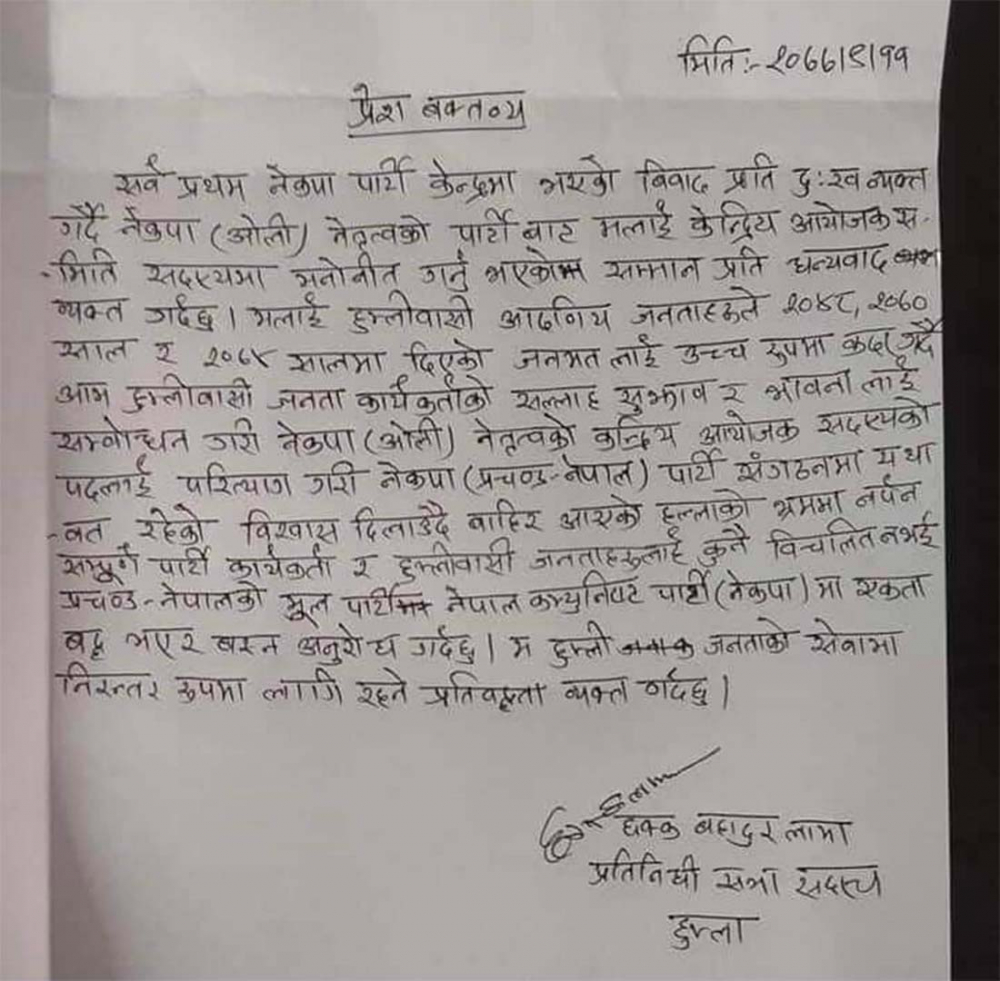 मिति :- २०७७।९।११
प्रेश बक्तव्य
सर्व प्रथम नेकपा पार्टी केन्द्रमा भएको विवाद प्रति दुःख व्यक्त
गर्दै नेकपा (ओली) नेतृत्वको पार्टी बाट मलाई केन्द्रिय आयोजक स-
-मिति सदस्यमा मनोनीत गर्नु भएकोमा सम्मान प्रति धन्यवाद
व्यक्त गर्दछु। मलाई हुम्लीवासी आदणिय जनताहरूले २०४८, २०७०
साल र २०७४ सालमा दिएको जनमत लाई उच्च रुपमा कदर गर्दै
आम हुम्लीवासी जनता कार्यकर्ताको सल्लाह सुझाव र भावना लाई
सम्वोन्धन गरी नेकपा (ओली) नेतृत्वको केन्द्रिय आयोजक सदस्यको
पदलाई परित्याग गरी नेकपा (प्रचण्ड-नेपाल) पार्टी संगठनमा यथा
-वत रहेको विश्वास दिलाउदै बाहिर आएको हल्लाको भ्रममा नर्पन
सम्पूर्ण पार्टी कार्यकर्ता र हुम्लीवासी जनताहरुलाई कुनै विचलित नभई
प्रचण्ड-नेपालको मूल पार्टी नेपाल कम्युनिष्ट पार्टी (नेकपा) मा एकता
बद्द भएर बस्न अनुरोध गर्दछु। म हुम्ली जनताको सेवामा
निरन्तर रुपमा लागि रहने प्रतिवद्दता व्यक्त गर्दछु।
छक्क बहादुर लामा
प्रतिनिधी सभा सदस्य
हुम्ला